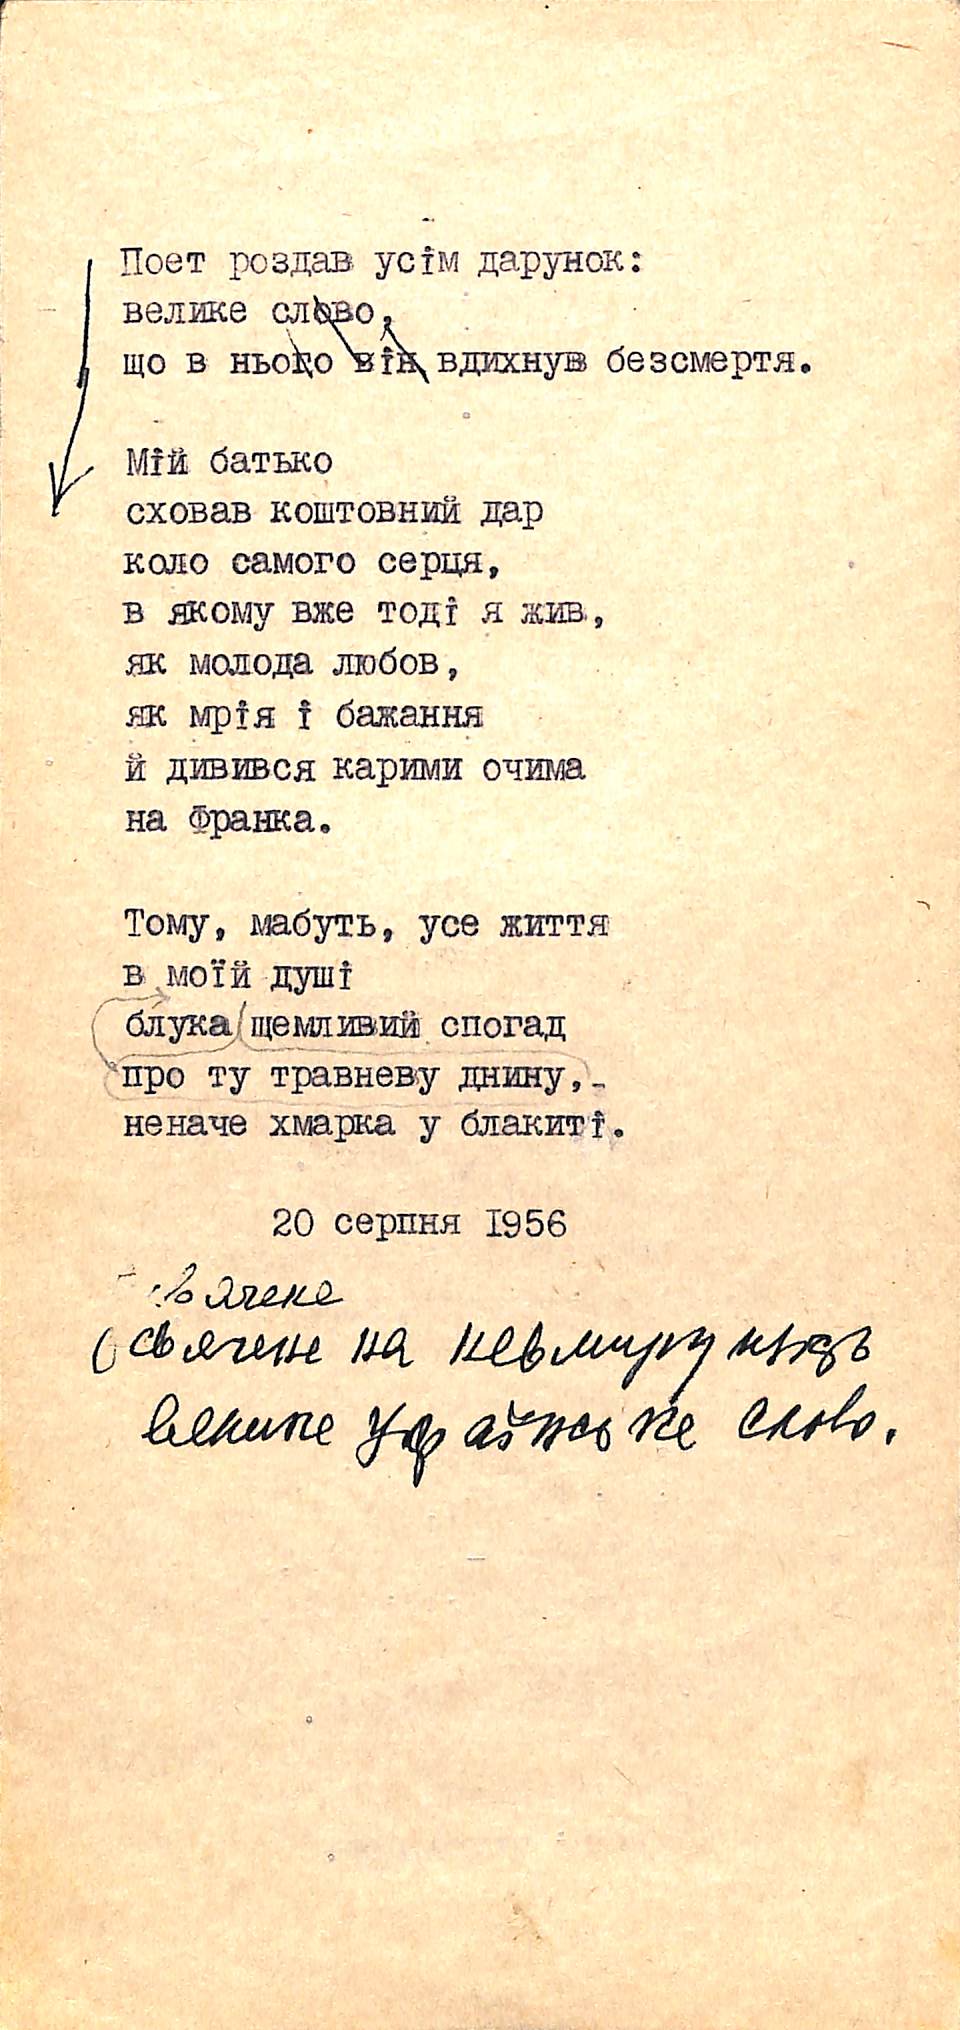 Поет роздав усім дарунок:
велике слово,
що в нього він вдихнув безсмертя.
Мій батько
сховав коштовний дар
коло самого серця,
в якому вже тоді я жив,
як молода любов,
як мрія і бажання
й дивився карими очима
на Франка.
Тому, мабуть, усе життя
в моїй душі
блука щемливий спогад
про ту травневу днину,
неначе хмарка у блакиті.
20 серпня 1956
свячене на невмирущість
велике українське слово.